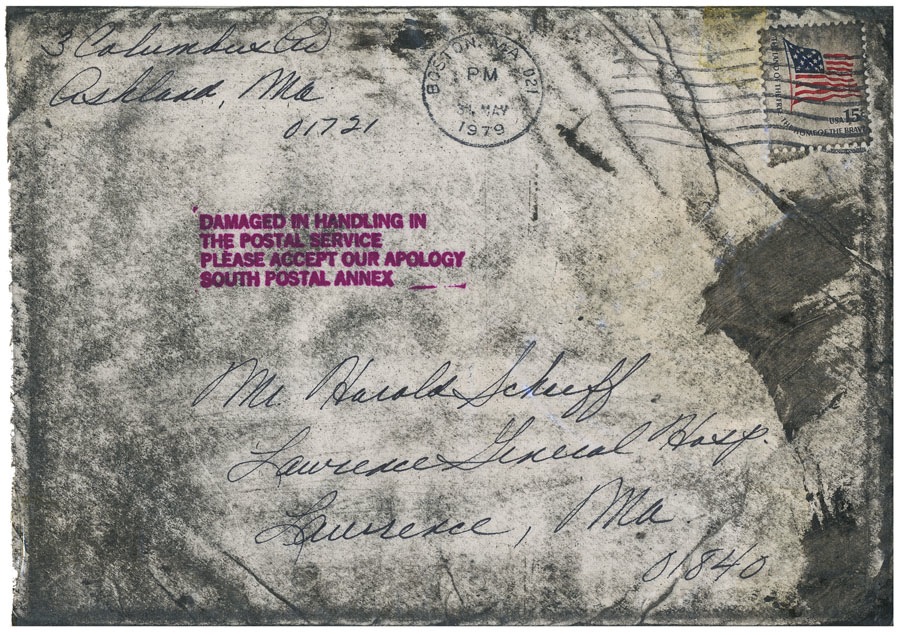 3 Columbus
Ashland, Ma
01721
BOSTON, MA 021
PM
MAY
1979
LAND OF THE FREE
THE HOME OF THE BRAVE
USA 15c
DAMAGED IN HANDLING IN
THE POSTAL SERVICE
PLEASE ACCEPT OUR APOLOGY
SOUTH POSTAL ANNEX
Mr. Harold
Lawrence General Hosp.
Lawrence, Ma
01840